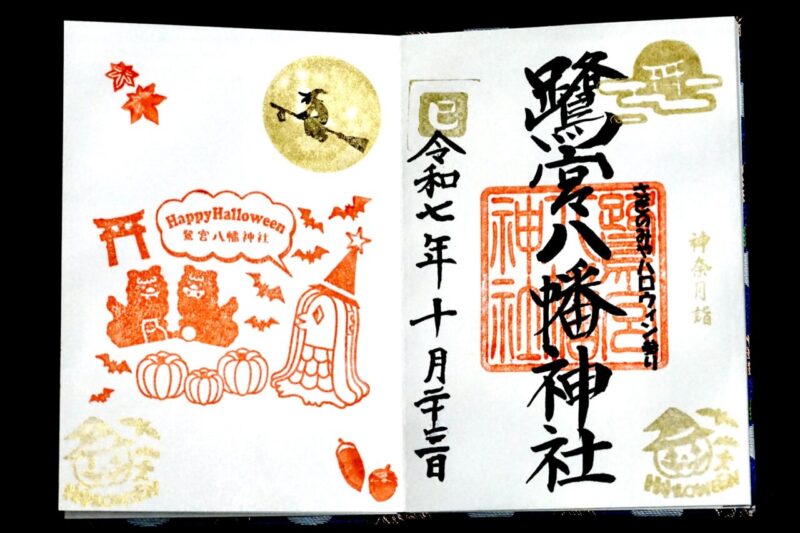 神奈月詣
さぎのみやハロウィン祭り
鷺宮八幡神社
巳
令和七年十月二十三日
HALLOWEEN
HappyHalloween
鷺宮八幡神社
HALLOWEEN